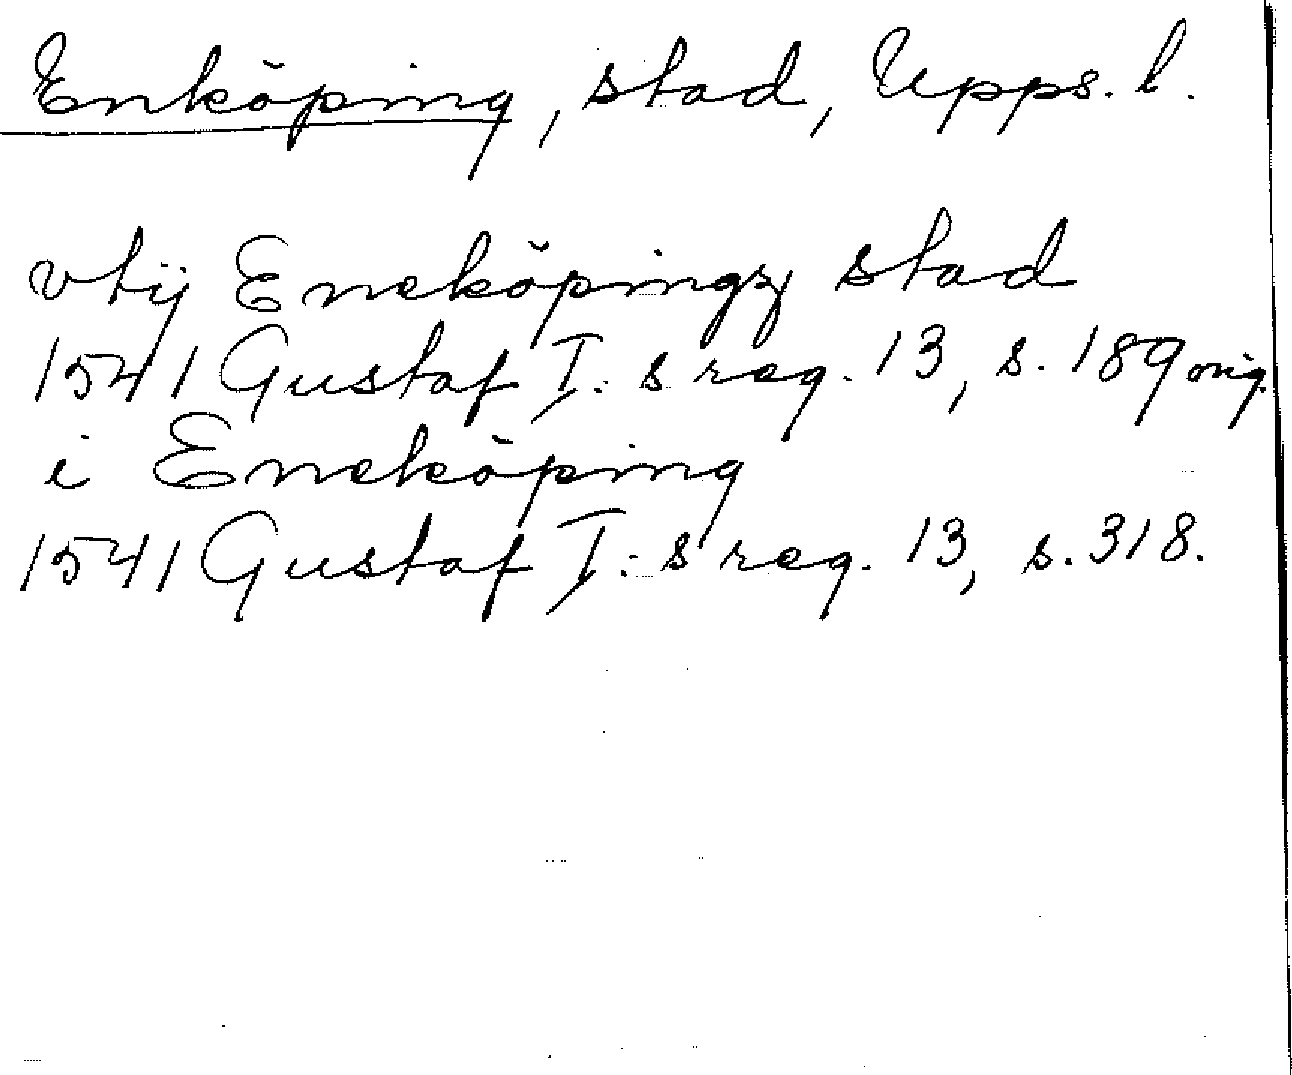 Enköping, stad, Upps. l.
vtij Eneköpingz stad
1541 Gustaf I:s reg. 13, s. 189 orig.
i Eneköping
1541 Gustaf I:s reg. 13, s. 318.